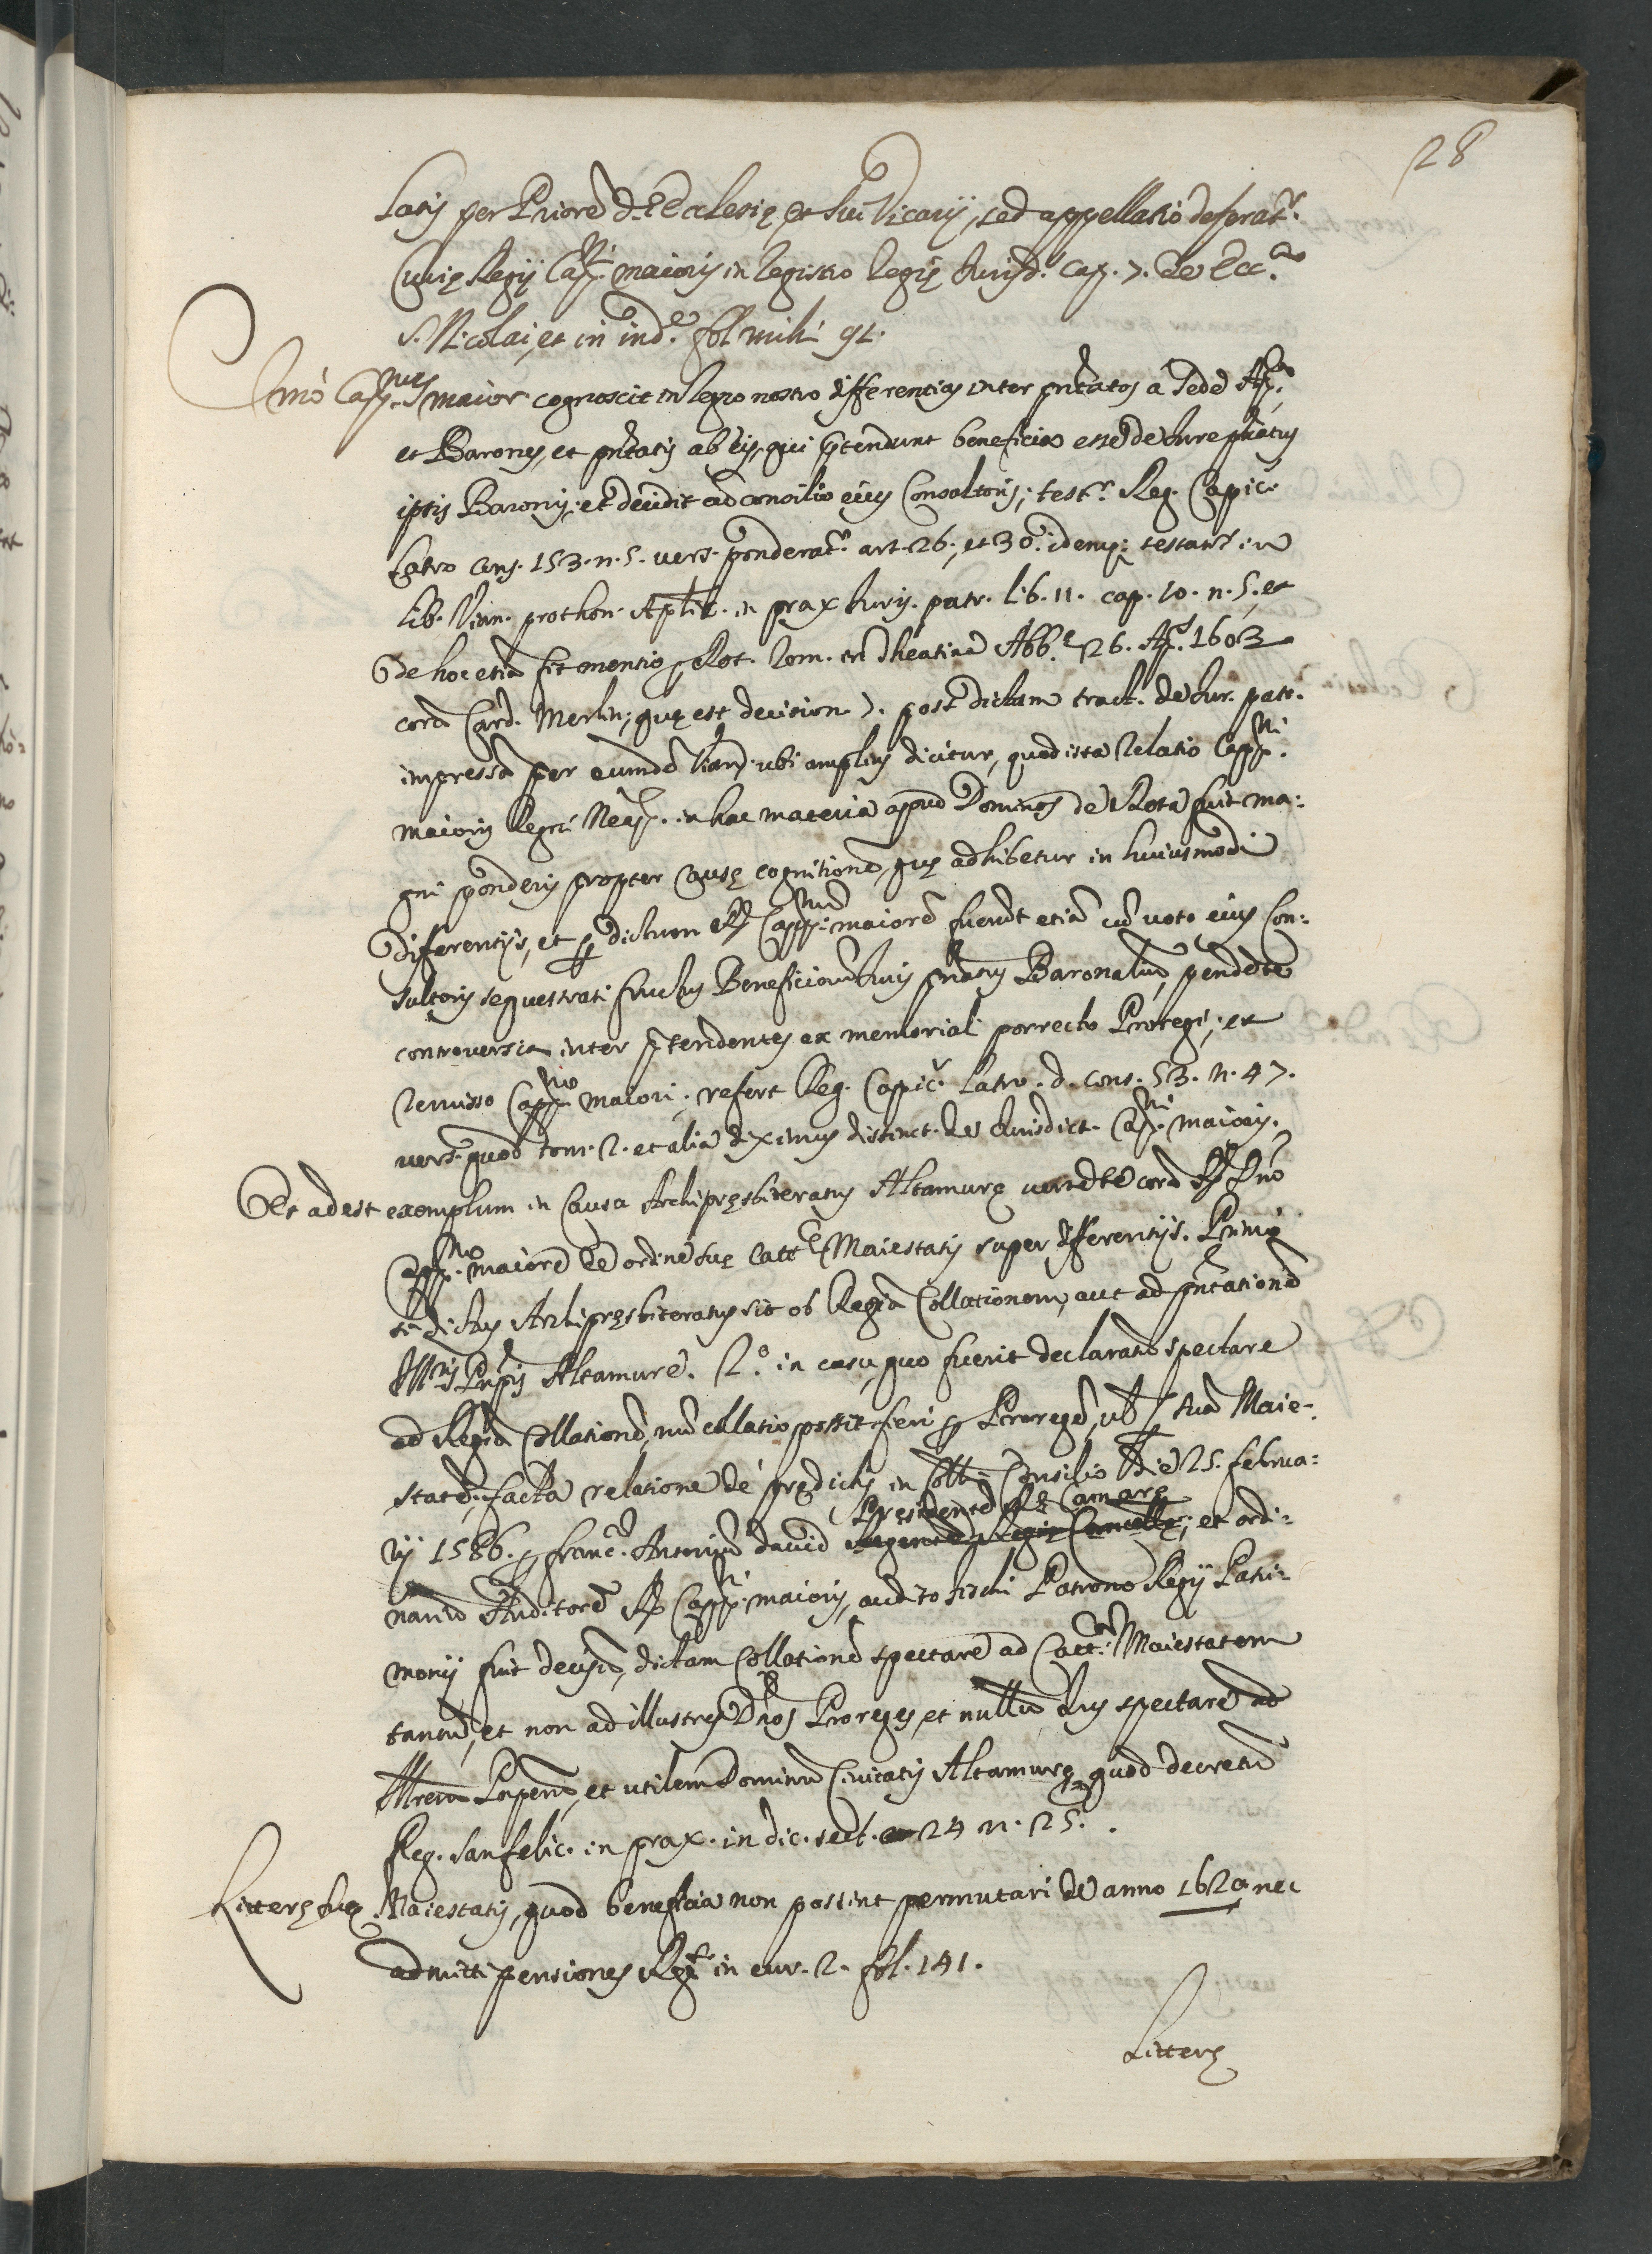 28
latis per Priorē d. Ecclesię, et sui Vicarij, sed appellatio deferatr.
Curię Regij Cappni. maioris in Registro Regię Jurisd. cap. 7. de Ecc.
S. Nicolai, et in ind.e fol. mihi 92.
Imò Cappnus maior cognoscit in Regno nostro differentias inter pntatos à Sede Ap.ca
et Barones, et pntatis ab eis, qui prętendunt beneficia esse de Iure pnatus
ipsis Baronis; et decidit cū consilio eius Consultoris; testr. Reg. Capic.
Latro cons. 153. n. 5. vers. ponderatr. art. 26. et 30. idemq; testatr in
lib. Vian. prothon. Aplic. in prax Iuris. patr. lib. 11. cap. 10. n. 5. et
de hoc etiā fit mentio p Rot. Rom. in Theatinā Abb.e 26. Ap. 1603
corā Card. Merlin; quę est decision 7. post dictam tract. de Iur. patr.
impressā per eumdē Vian. ubi amplius dicitur, quod ista relatio Cappni.
maioris Regni Neap. in hac materia apud Dominos de Rota fuit ma:
gni ponderis propter causę cognitionē, quę adhibetur in huiusmodi
differentijs, et p dictum R. Cappnum maiorē fuerūt etiā cū voto eius Con:
sultoris sequestrati fructus Beneficiorū Iuris pnatus Baronaliū, pendēte
controversia inter prętendentes ex memoriali porrecto Proregi; et
remisso Cappno maiori; refert Reg. Capic. Latro. d. cons. 53. n. 47.
vers. quod tom. 2. et alia diximus distinct. de Iurisdict. Cap.ni maioris.
Et adest exemplum in causa Archipręsbiteratus Altamurę vertēte corā R. Dno
Cappno. maiorē de ordine suę Catt.ę Maiestatis super differentijs. Primo
si dictus Archipręsbiteratus sit ob Regiā Collationem, aut ad pntationē
Ill.ris Pnpis Altamure. 2.o in casu, quo fuerit declaratū spectare
ad Regiā Collationē, nū collatio possit fieri p Proregē, vel p suā Maie-
statē, facta relatione de prędictis in Coll. Consilio die 25. februa:
rij 1586. p Franc. Antoniū David Pręsidentē R. Camarę
Regentē Regię Cancellę; et ordi:
nariū Auditorē R. Cappni. maioris, audito fisci Patrono Regij Patri-
monij fuit decisū, dictam Collationē spectare ad Catt.am Maiestatem
tantū, et non ad illustres Dnos Proreges, et nullū Ius spectare ad
Illrem Pnpem, et utilem Dominū Civitatis Altamurę, quod decretū
Reg. Sanfelic. in prax. in dic. sect. 24 n. 25.
Litterę suę Maiestatis, quod beneficia non possint permutari de anno 1620 nec
admitti pensiones Regr. in cur. 2. fol. 141.
Litterę